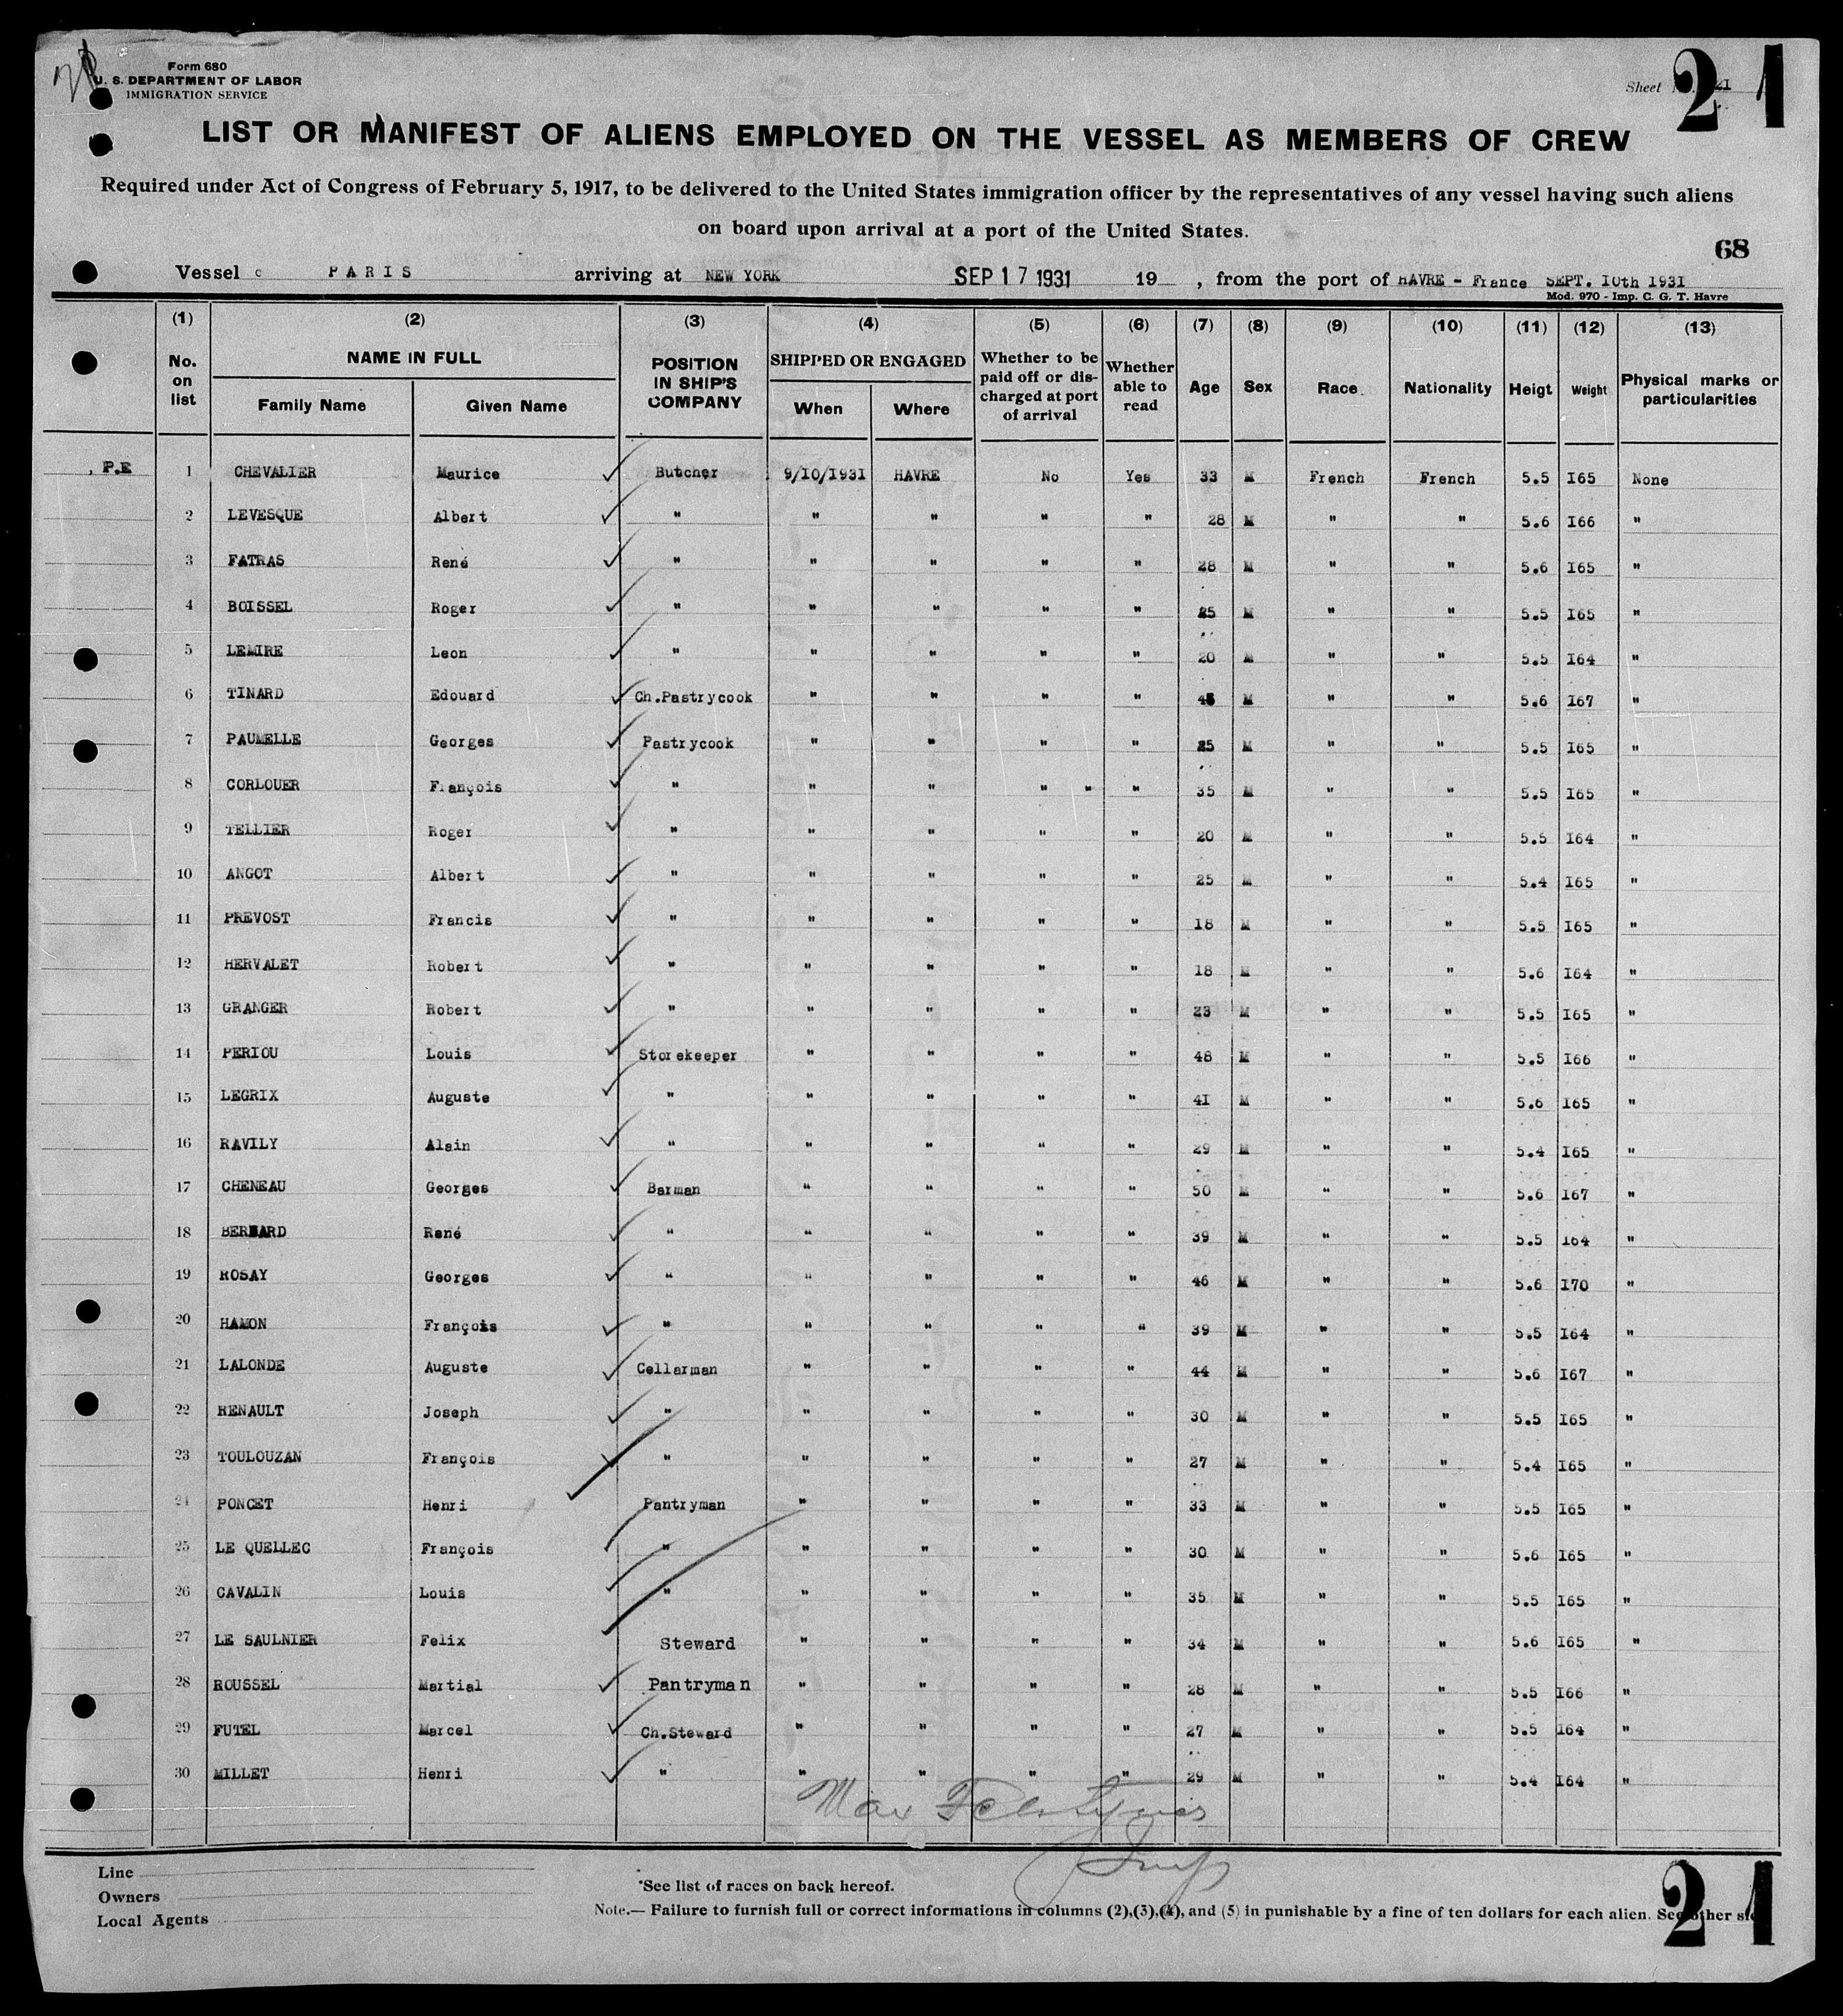 Form 680
U. S. DEPARTMENT OF LABOR
IMMIGRATION SERVICE
Sheet 21
21
LIST OR MANIFEST OF ALIENS EMPLOYED ON THE VESSEL AS MEMBERS OF CREW
Required under Act of Congress of February 5, 1917, to be delivered to the United States immigration officer by the representatives of any vessel having such aliens
on board upon arrival at a port of the United States.
68
Vessel c PARIS arriving at NEW YORK SEP 17 1931 19 , from the port of HAVRE - France SEPT. IOth 1931
Mod. 970 - Imp. C. G. T. Havre
(1) (2) (3) (4) (5) (6) (7) (8) (9) (10) (11) (12) (13)
No. on list NAME IN FULL Family Name Given Name POSITION IN SHIP'S COMPANY SHIPPED OR ENGAGED When Where Whether to be paid off or discharged at port of arrival Whether able to read Age Sex Race Nationality Heigt Weight Physical marks or particularities
P.E 1 CHEVALIER Maurice Butcher 9/10/1931 HAVRE No Yes 33 M French French 5.5 I65 None
2 LEVESQUE Albert " " " " " 28 M " " 5.6 I66 "
3 FATRAS René " " " " " 28 M " " 5.6 I65 "
4 BOISSEL Roger " " " " " 25 M " " 5.5 I65 "
5 LEMIRE Leon " " " " " 20 M " " 5.5 I64 "
6 TINARD Edouard Ch.Pastrycook " " " " 45 M " " 5.6 I67 "
7 PAUMELLE Georges Pastrycook " " " " 25 M " " 5.5 I65 "
8 CORLOUER François " " " " " " 35 M " " 5.5 I65 "
9 TELLIER Roger " " " " " 20 M " " 5.5 I64 "
10 ANGOT Albert " " " " " 25 M " " 5.4 I65 "
11 PREVOST Francis " " " " " 18 M " " 5.5 I65 "
12 HERVALET Robert " " " " " 18 M " " 5.6 I64 "
13 GRANGER Robert " " " " " 23 M " " 5.5 I65 "
14 PERIOU Louis Storekeeper " " " " 48 M " " 5.5 I66 "
15 LEGRIX Auguste " " " " " 4I M " " 5.6 I65 "
16 RAVILY Alain " " " " " 29 M " " 5.4 I65 "
17 CHENEAU Georges Barman " " " " 50 M " " 5.6 I67 "
18 BERNARD René " " " " " 39 M " " 5.5 I64 "
19 ROSAY Georges " " " " " 46 M " " 5.6 I70 "
20 HAMON François " " " " " 39 M " " 5.5 I64 "
21 LALONDE Auguste Cellarman " " " " 44 M " " 5.6 I67 "
22 RENAULT Joseph " " " " " 30 M " " 5.5 I65 "
23 TOULOUZAN François " " " " " 27 M " " 5.4 I65 "
24 PONCET Henri Pantryman " " " " 33 M " " 5.5 I65 "
25 LE QUELLEC François " " " " " 30 M " " 5.6 I65 "
26 CAVALIN Louis " " " " " 35 M " " 5.5 I65 "
27 LE SAULNIER Felix Steward " " " " 34 M " " 5.6 I65 "
28 ROUSSEL Martial Pantryman " " " " 28 M " " 5.5 I66 "
29 FUTEL Marcel Ch.Steward " " " " 27 M " " 5.5 I64 "
30 MILLET Henri " " " " " 29 M " " 5.4 I64 "
Max
Insp
Line
Owners
Local Agents
*See list of races on back hereof.
Note.— Failure to furnish full or correct informations in columns (2),(3),(4), and (5) in punishable by a fine of ten dollars for each alien. See other
21